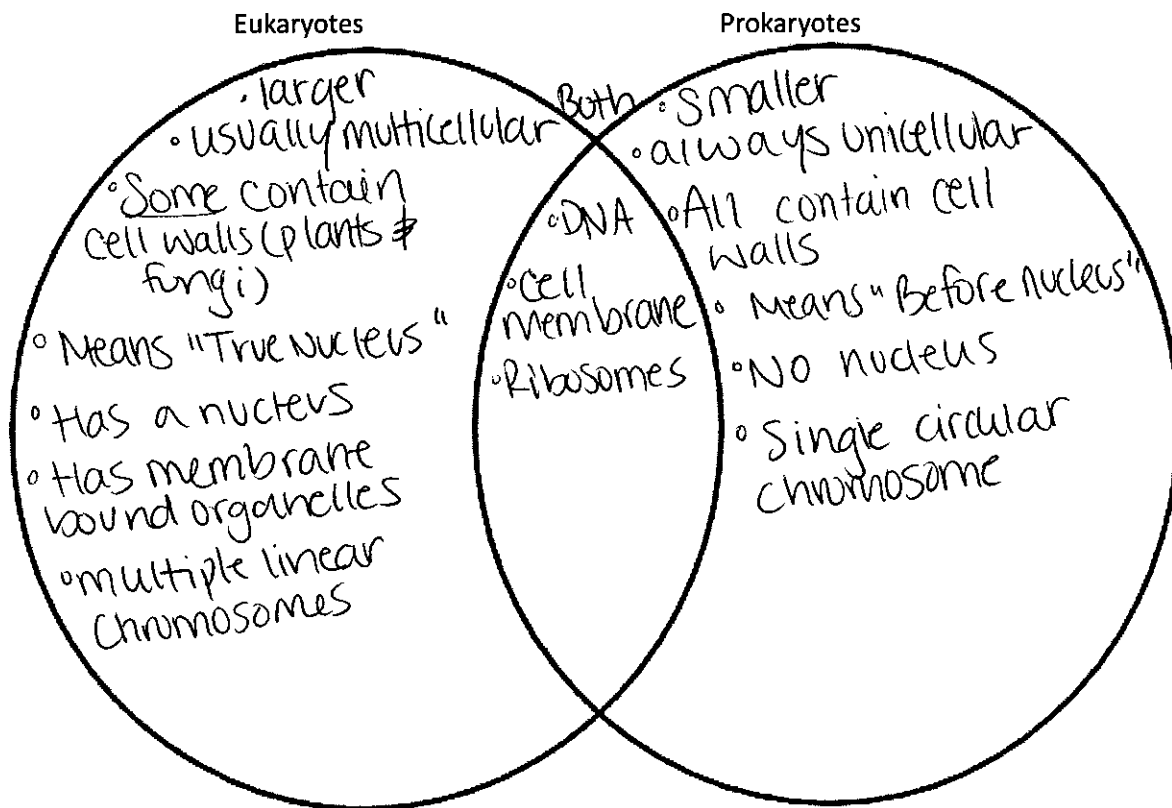 Eukaryotes
Prokaryotes
• larger
• usually multicellular
• Some contain
cell walls (plants &
fungi)
• Means "True Nucleus"
• Has a nucleus
• Has membrane
bound organelles
• multiple linear
Chromosomes
Both
• DNA
• Cell
membrane
• Ribosomes
• Smaller
• always unicellular
• All contain cell
walls
• Means "Before nucleus"
• No nucleus
• Single circular
chromosome